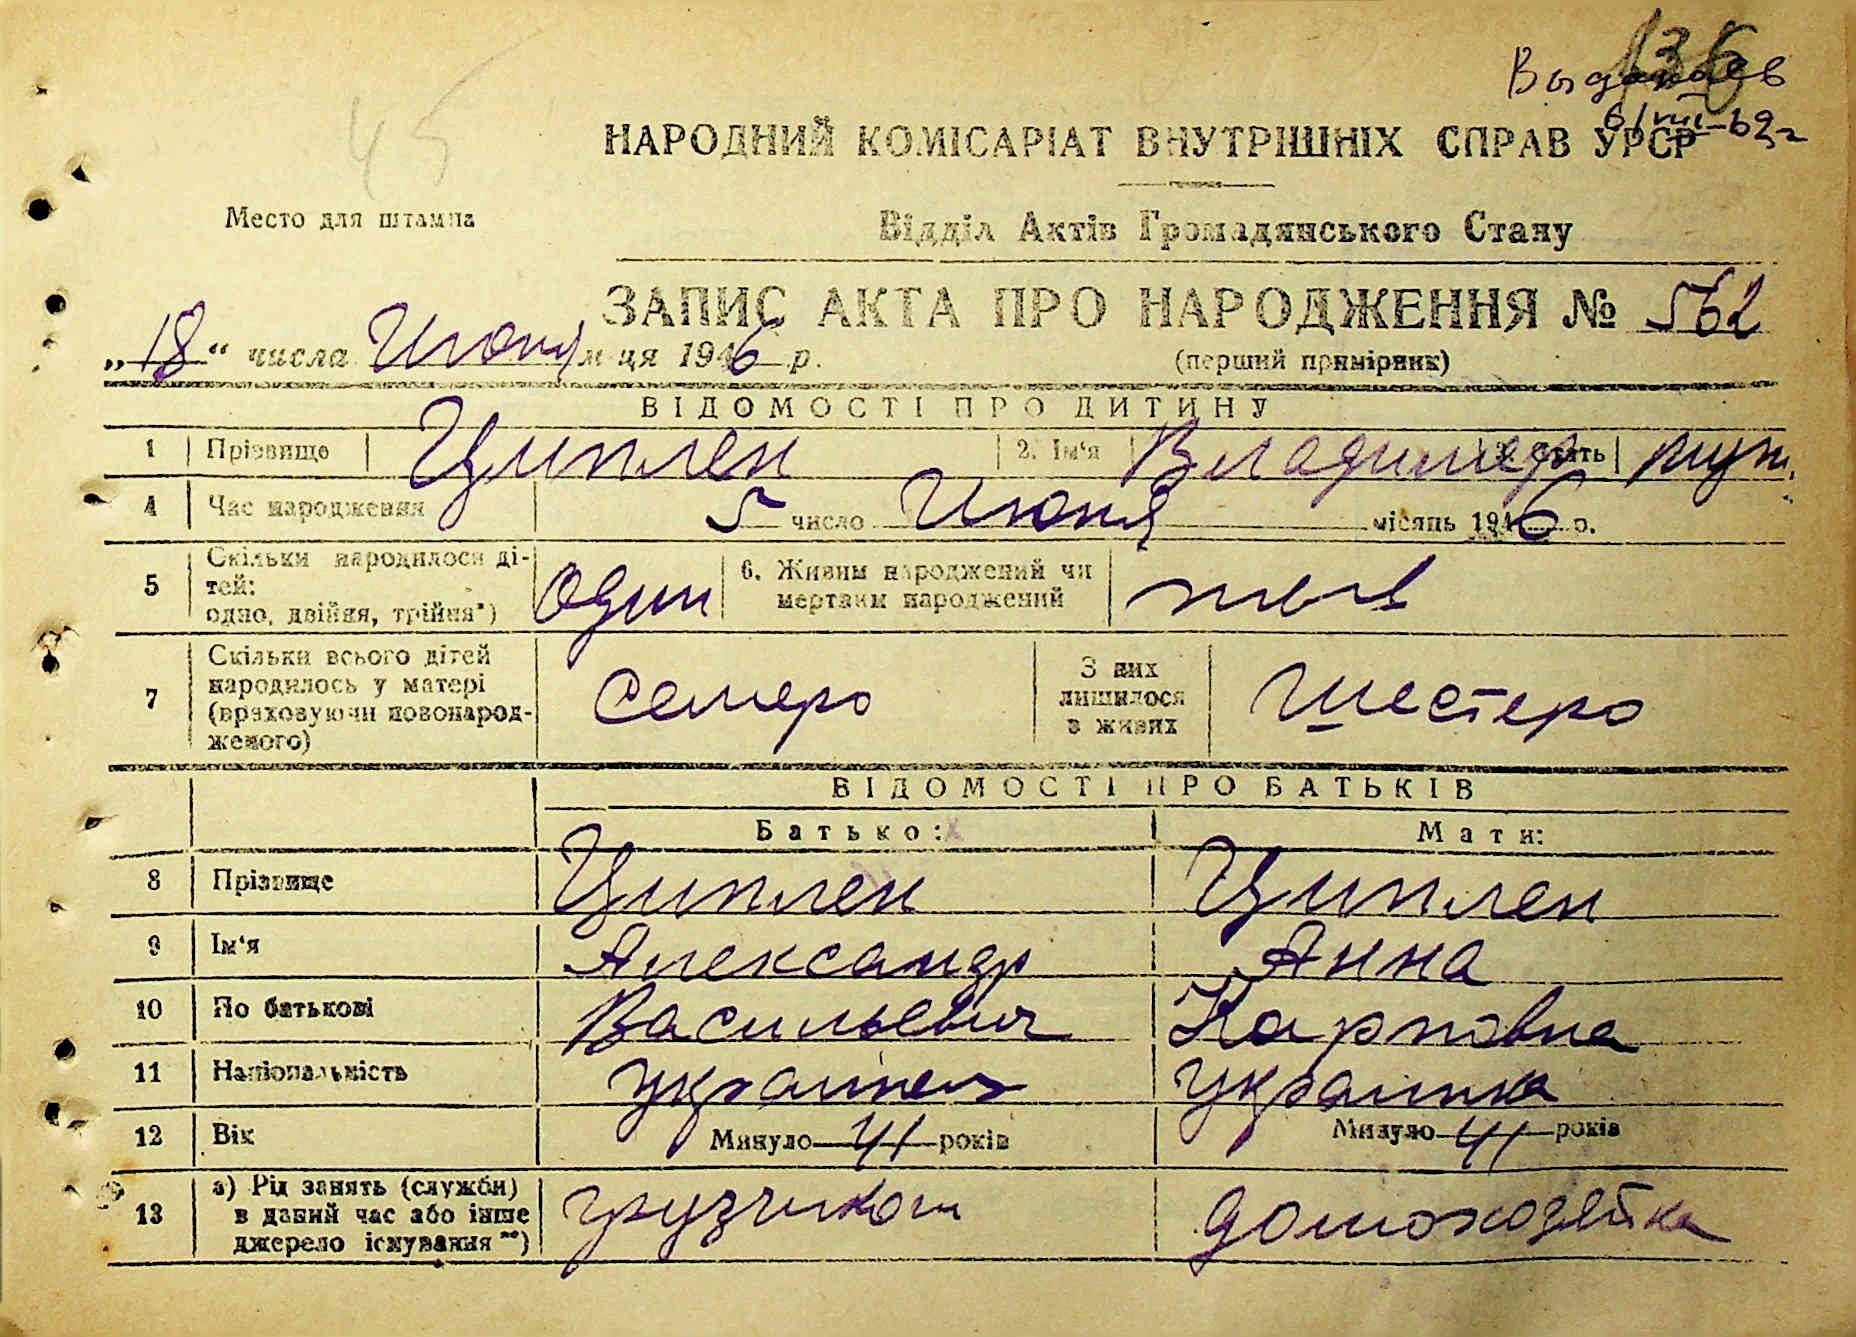 136
6/VIII-69г
45
НАРОДНИЙ КОМІСАРІАТ ВНУТРІШНІХ СПРАВ УРСР
Место для штампа
Відділ Актів Громадянського Стану
ЗАПИС АКТА ПРО НАРОДЖЕННЯ № 562
„18“ числа Июня м-ця 1946 р.
(перший примірник)
ВІДОМОСТІ ПРО ДИТИНУ
1 Прізвище Циплен 2. Ім'я Владимир 3. Стать муж.
4 Час народження 5 число Июня місяць 1946 р.
5 Скільки народилося ді-
тей:
одно, двійня, трійня*) один
6. Живим народжений чи
мертвим народжений
7 Скільки всього дітей
народилось у матері
(враховуючи новонарод-
женого) семеро
З них
лишилося
в живих шестеро
ВІДОМОСТІ ПРО БАТЬКІВ
Батько: Мати:
8 Прізвище Циплен Циплен
9 Ім'я Александр Анна
10 По батькові Васильевич Карповна
11 Національність украинец украинка
12 Вік Минуло 41 років Минуло 41 років
13 а) Рід занять (служби)
в даний час або інше
джерело існування**) грузчиком домохозяйка